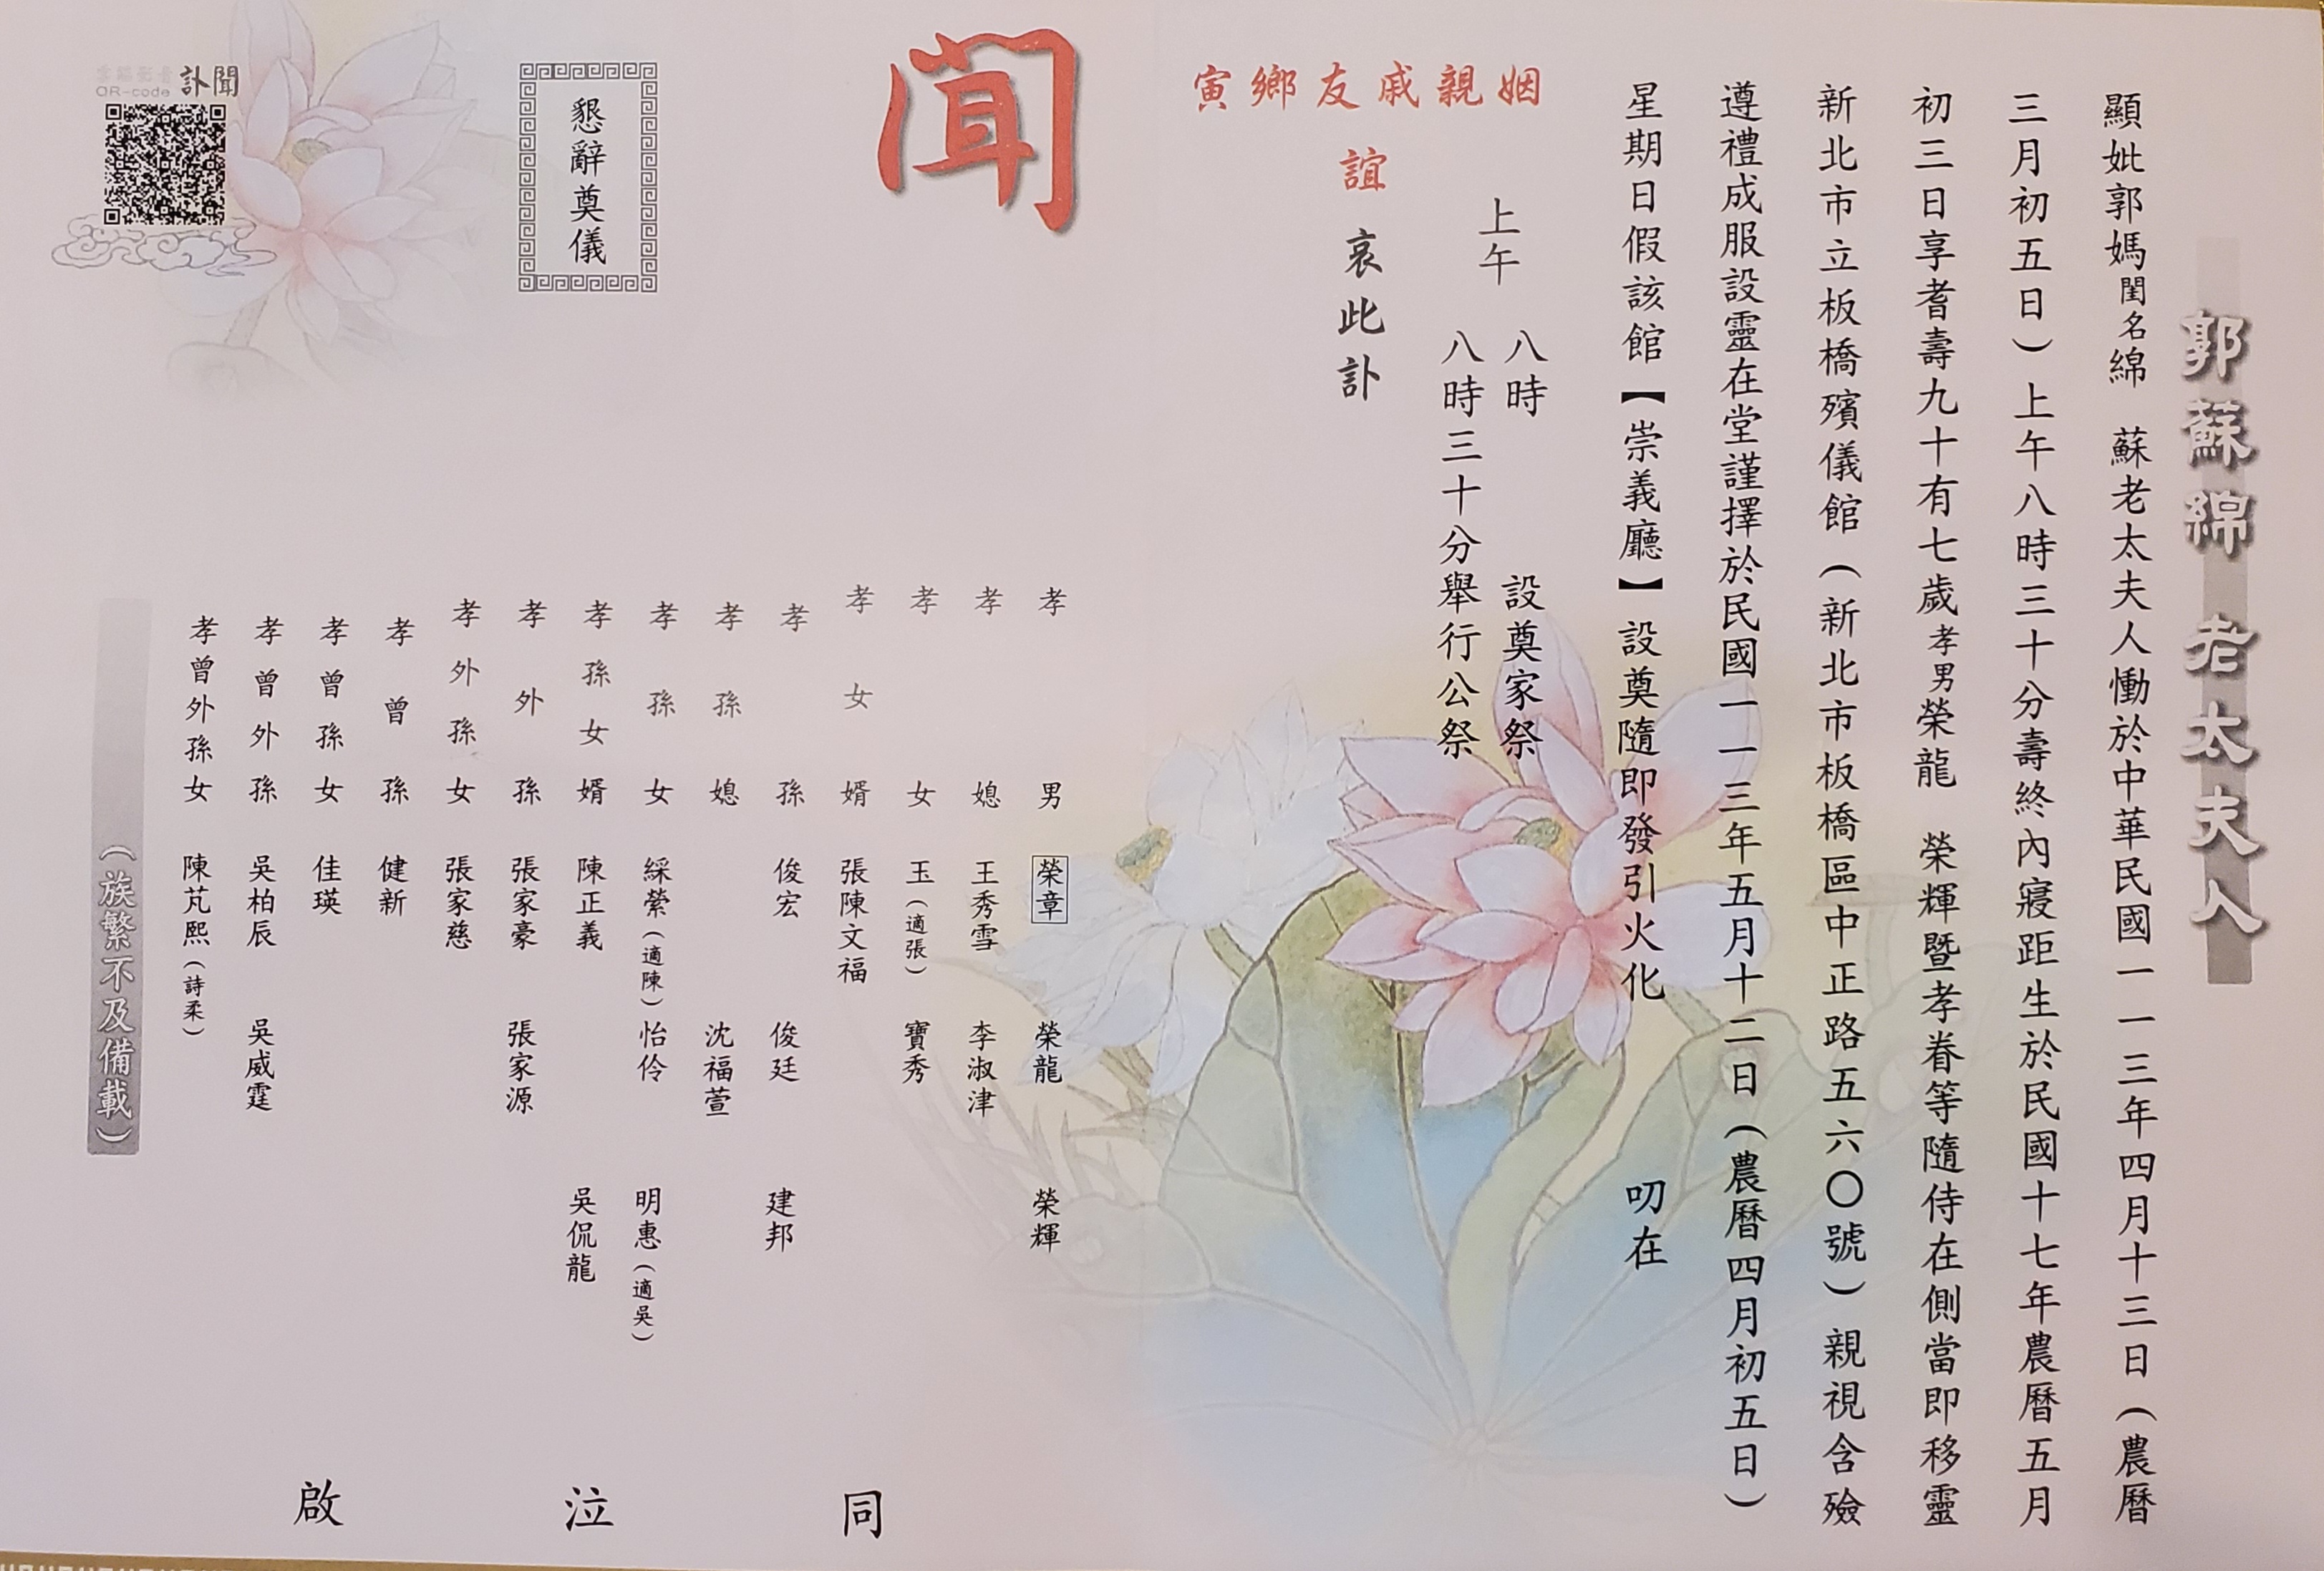 郭蘇綿 老太夫人
顯妣郭媽閨名綿 蘇老太夫人慟於中華民國一一三年四月十三日(農曆
三月初五日)上午八時三十分壽終內寢距生於民國十七年農曆五月
初三日享耆壽九十有七歲孝男榮龍 榮輝暨孝眷等隨侍在側當即移靈
新北市立板橋殯儀館(新北市板橋區中正路五六〇號)親視含殮
遵禮成服設靈在堂謹擇於民國一一三年五月十二日(農曆四月初五日)
星期日假該館【崇義廳】設奠隨即發引火化 叨在
上午 八時 設奠家祭
八時三十分舉行公祭
寅鄉友戚親姻
誼 哀此訃
聞
孝男 榮章 榮龍 榮輝
孝媳 王秀雪 李淑津
孝女 玉(適張) 寶秀
孝女婿 張陳文福
孝孫 俊宏 俊廷 建邦
孝孫媳 沈福萱
孝孫女 綵縈(適陳) 怡伶 明惠(適吳)
孝孫女婿 陳正義 吳侃龍
孝外孫 張家豪 張家源
孝外孫女 張家慈
孝曾孫 健新
孝曾孫女 佳瑛
孝曾外孫 吳柏辰 吳威霆
孝曾外孫女 陳芃熙(詩柔)
同泣啟
(族繁不及備載)
懇辭奠儀
訃聞
QR-code